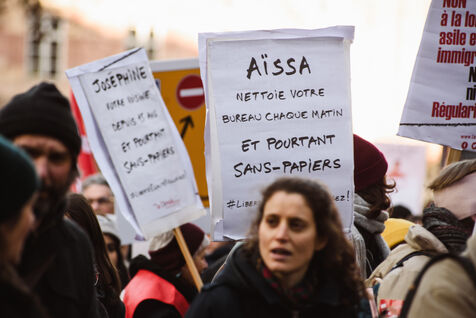 JOSÉPHINE
VOTRE VOISINE
DEPUIS 15 ANS
ET POURTANT
SANS-PAPIERS
AÏSSA
NETTOIE VOTRE
BUREAU CHAQUE MATIN
ET POURTANT
SANS-PAPIERS
NON
à la lo
asile e
immig
N
ni
Régulari